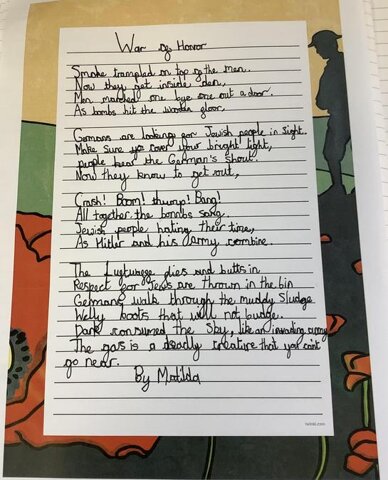 War of Honor
Smoke trampled on top of the men.
Now they get inside den,
Men marched one bye one out a door.
As bombs hit the wooden floor.
Germans are looking for Jewish people in sight.
Make sure you cover your bright light,
people hear the German's shout.
Now they know to get out,
Crash! Boom! thump! Bang!
All together the bombs sang.
Jewish people hating their time,
As Hitler and his army combine.
The dies and butts in
Respect for Jews are thrown in the bin
Germans walk through the muddy sludge
Welly boots that will not budge.
Dark consumed the sky, like an invading army
The gas is a deadly creature that you can't
go near.
By Matilda
twinkl.com